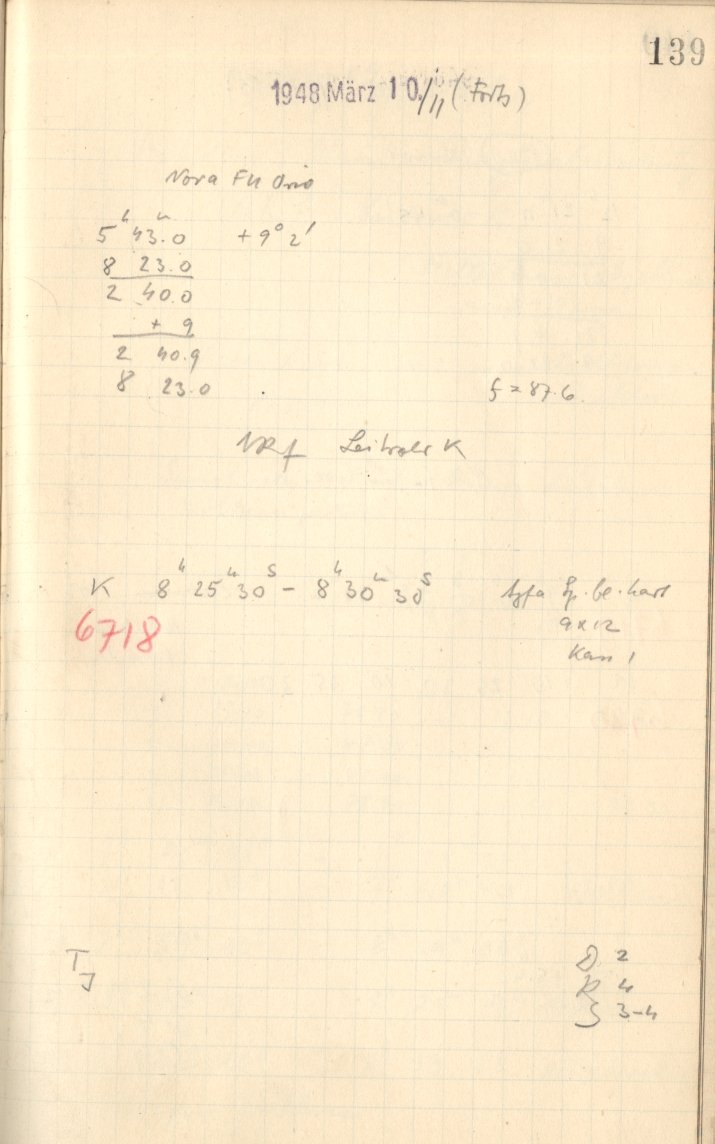 139
1948 März 10./11 (Forts)
Nova FU Orio
5ʰ 43ᵐ.0 +9° 2'
8 23.0
2 40.0
+ 9
2 40.9
8 23.0 f = 87.6
K
K 8ʰ 25ᵐ 30ˢ - 8ʰ 30ᵐ 30ˢ Agfa Sp. bl. hart
6718
9x12
Kass 1
T
J
D 2
R 4
S 3-4